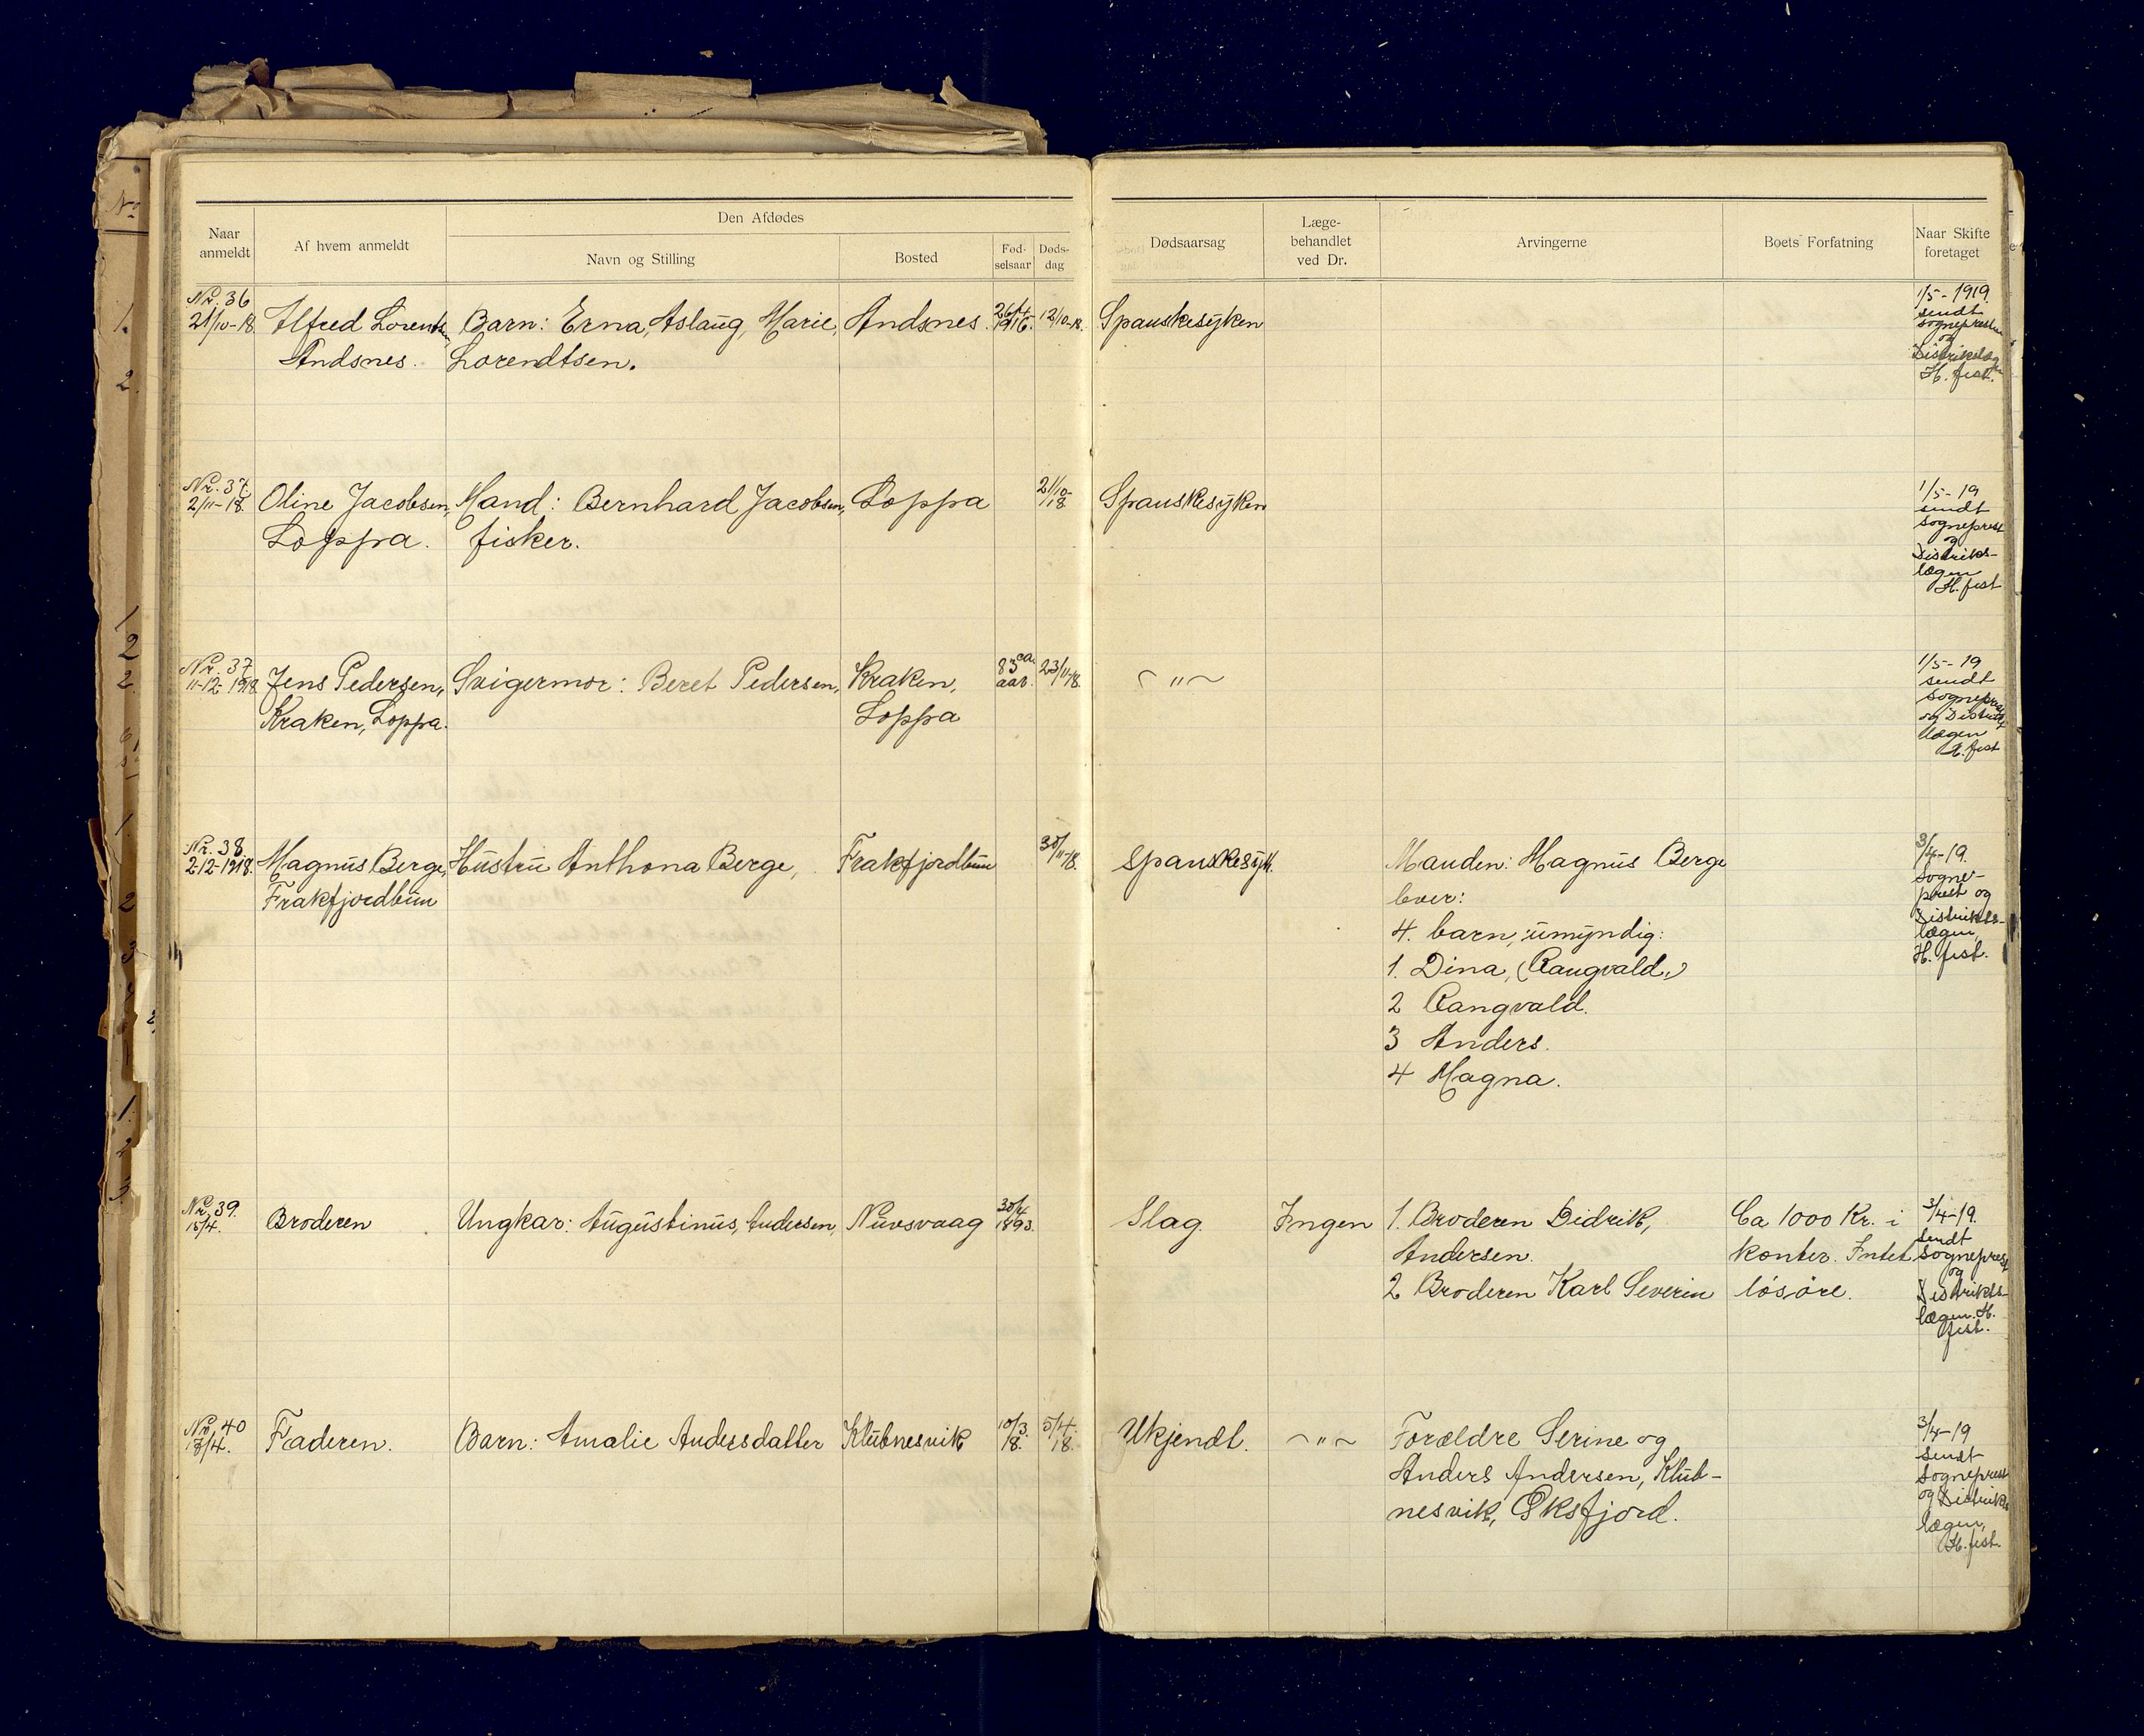 Naar
anmeldt
Af hvem anmeldt
Den Afdødes
Navn og Stilling
Bosted
Fød-
selsaar
Døds-
dag
Dødsaarsag
Læge-
behandlet
ved Dr.
Arvingerne
Boets Forfatning
Naar Skifte
foretaget
Nr. 36
21/10-18
Alfred Lorentsen,
Andsnes.
Barn: Erna, Aslaug, Marie,
Lorendtsen.
Andsnes.
26/4
1916.
12/10-18.
Spanskesyken
1/5-1919.
sendt
sognepresten
og
Distriktslægen
H. fest.
Nr. 37
2/11-18.
Oline Jacobsen,
Loppa.
Mand: Bernhard Jacobsen,
fisker.
Loppa
21/10-
18.
Spanskesyken
1/5-19
sendt
sogneprest
og
Distrikts-
lægen
H. fest
Nr. 37
11-12-1918.
Jens Pedersen,
Kraken, Loppa.
Svigermor: Beret Pedersen,
Kraken,
Loppa
83 ca.
aar.
23/11-18.
~ " ~
1/5-19
sendt
sogneprest
og Distrikts
lægen
H. fest
Nr. 38.
2-12-1918.
Magnus Berge,
Frakfjordbun
Hustru Anthona Berge,
Frakfjordbun
30/
11-18.
Spanskesyk.
Manden: Magnus Berge
lever:
4. barn, umyndig:
1. Dina, (Rangvald,)
2 Rangvald.
3 Anders.
4 Magna.
3/4-19.
sogne-
prest og
Distrikts-
lægen,
H. fest.
Nr. 39.
15/4.
Broderen
Ungkar: Augustinus, Andersen,
Nuvsvaag
30/4
1893.
Slag.
Ingen
1. Broderen Didrik,
Andersen.
2 Broderen Karl Severin
Ca 1000 Kr. i
konter. Intet
løsøre.
3/4-19.
sendt
sogneprest
og
Distrikts-
lægen. H.
fest.
Nr. 40
17/4.
Faderen.
Barn: Amalie Andersdatter
Klubnesvik
10/3.
18.
5/4.
18.
Ukjendt.
~ " ~
Forældre Serine og
Anders Andersen, Klub-
nesvik, Øksfjord.
3/4-19
sendt
sogneprest
og Distrikts
lægen,
H. fest.